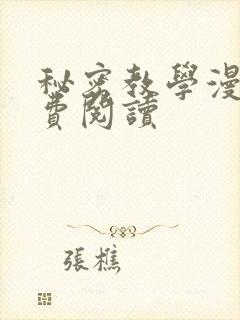 秘密教學漫
費閱讀
張樵